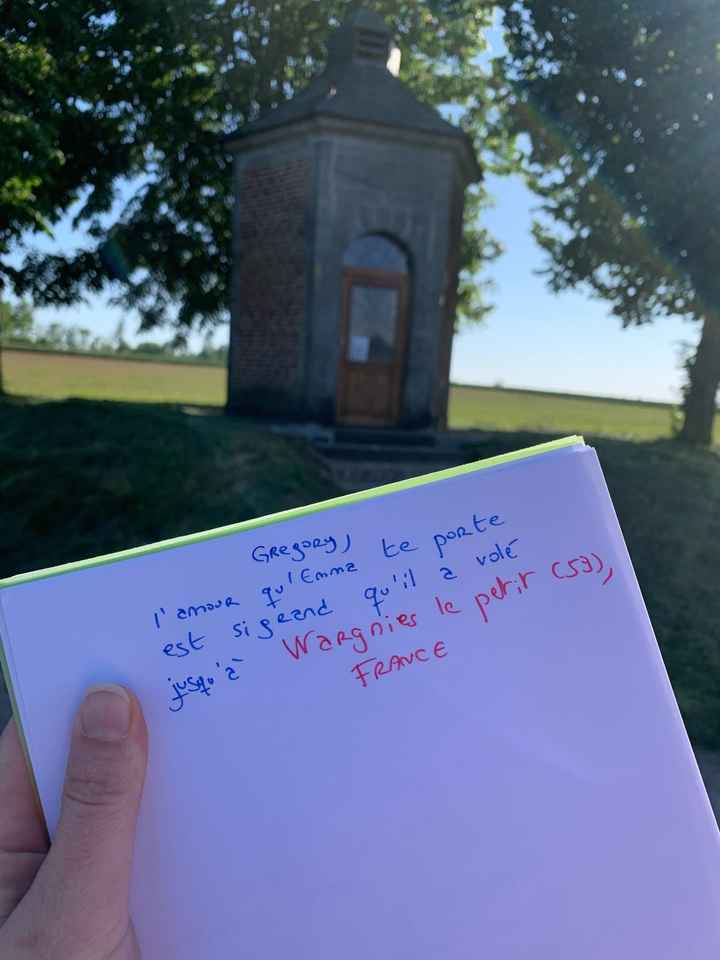 GREGORY,
l'amour qu'Emma te porte
est si grand qu'il a volé
jusqu'à Wargnies le petit (59),
FRANCE